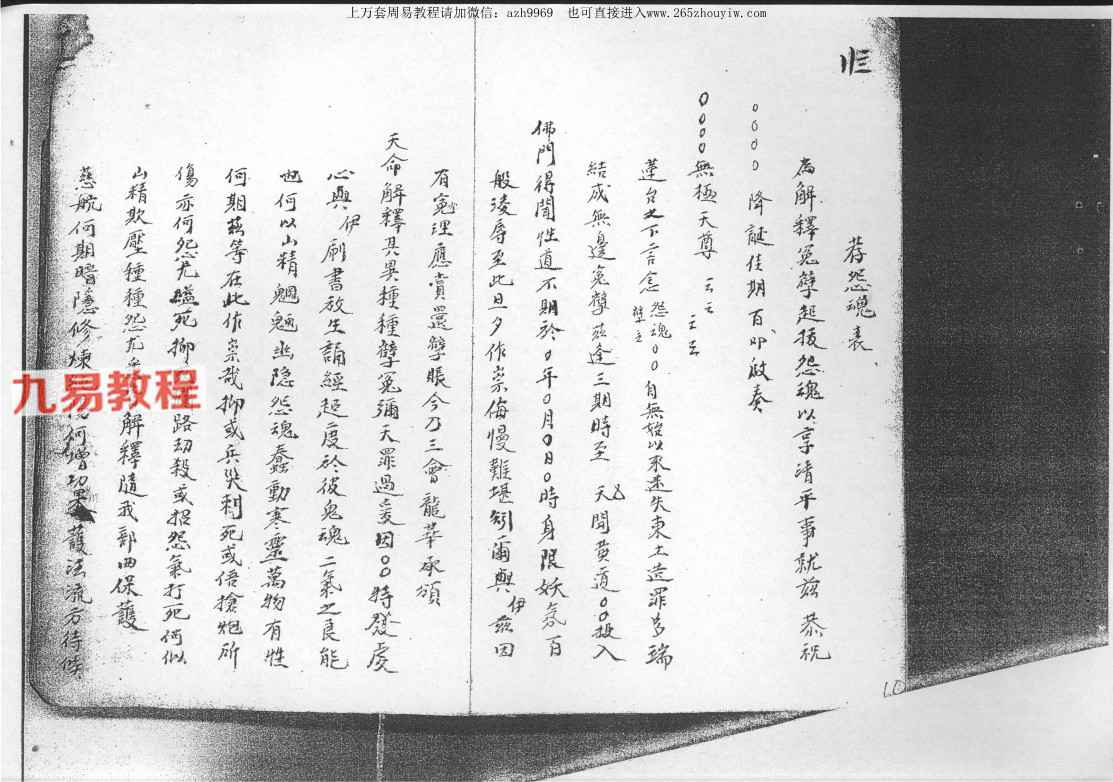 上万套周易教程请加微信：azh9969　也可直接进入www.265zhouyiw.com
荐怨魂表
為解釋冤孽超拔怨魂以享清平事就兹 恭祝
○○○○ 降誕佳期百叩啟奏
○○○○無極天尊 云云 云云
蓮台之下言念 怨魂 孽主 ○○自無始以來迷失東土造罪多端
結成無邊冤孽兹逢三期時至 天開黄道○○投入
佛門得聞性道不期於○年○月○日○時身限妖氛百
般凌辱至此旦夕作祟侮慢難堪 爾與伊兹因
有冤理應賞還孽賬今乃三會龍華承頒
天命解釋其異種種孽冤彌天罪過 因○○特發虔
心與伊刷書放生誦經超度於彼鬼魂二氣之良能
也何以山精魍魎幽隐怨魂蠢動寒靈萬物有性
何期兹等在此作祟哉抑或兵災刺死或倍搶炮所
傷亦何怨尤 死抑 路劫殺或招怨氣打死何似
山精欺壓種種怨尤 解釋隨我部西保護
慈航何期暗隱修煉 何增功 護法流方待候
九易教程
10